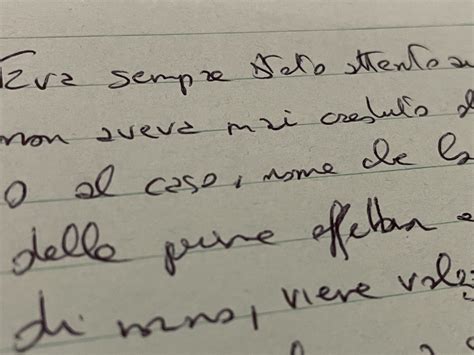 Era sempre stato attento a
non aveva mai creduto
O al caso, nome che la
delle prime
di mano, viene